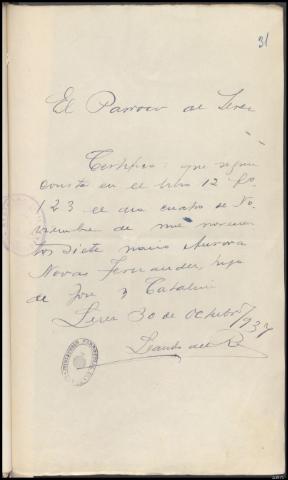 31
El Parroco de Lerez
Certifico: que segun
consta en el libro 12 fo.
123 el dia cuatro de No-
viembre de mil novecien
tos siete nació Aurora
Novas Fernandez, hija
de Jose y Catalina
Lerez 30 de Octubre/937
Leandro del R